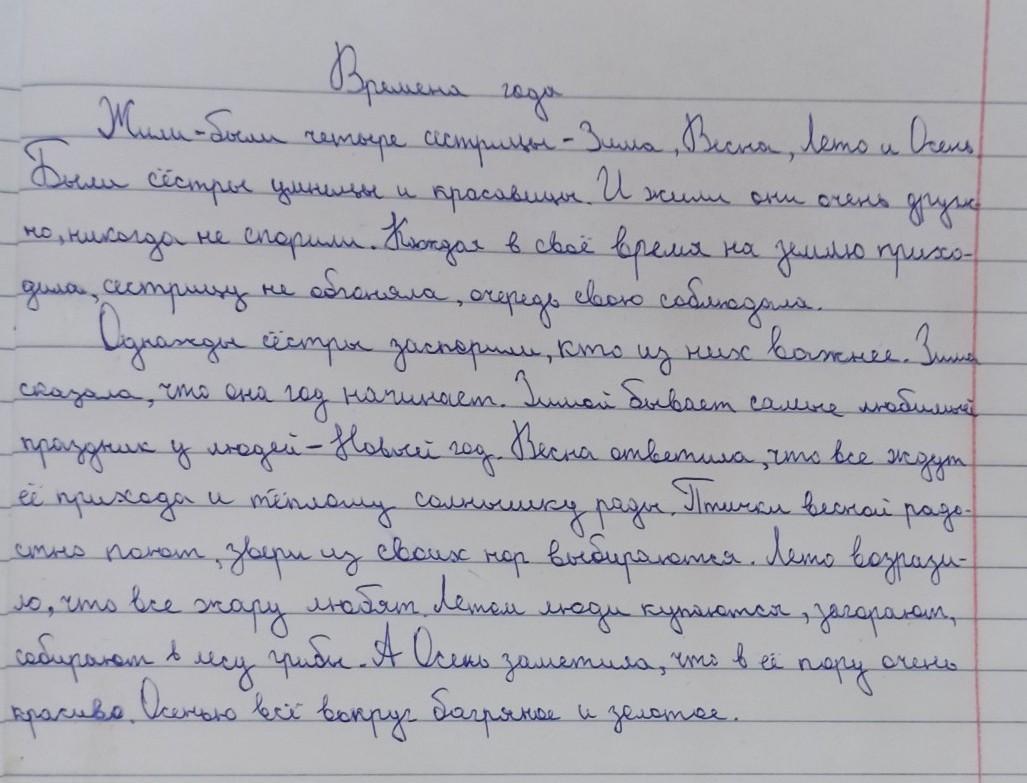 Времена года
Жили-были четыре сестрицы - Зима, Весна, Лето и Осень
Были сёстры умницы и красавицы. И жили они очень друж
но, никогда не спорили. Каждая в своё время на землю прихо-
дила, сестрицу не обгоняла, очередь свою соблюдала.
Однажды сёстры заспорили, кто из них важнее. Зима
сказала, что она год начинает. Зимой бывает самые любимый
праздник у людей - Новый год. Весна ответила, что все ждут
её прихода и тёплому солнышку рады. Птички весной радо-
стно поют, звери из своих нор выбираются. Лето возрази-
ло, что все жару любят. Летом люди купаются, загорают,
собирают в лесу грибы. А Осень заметила, что в её пору очень
красиво. Осенью всё вокруг багряное и золотое.